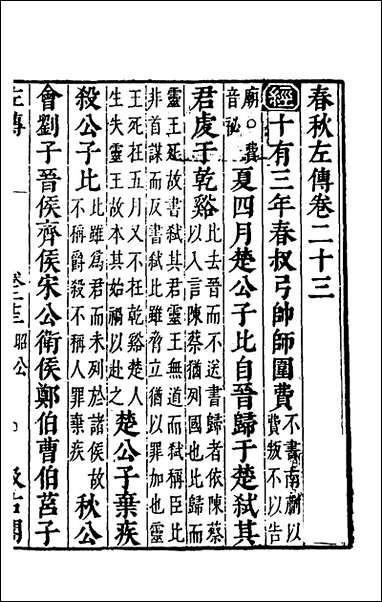 春秋左傳卷二十三
經十有三年春叔弓帥師圍費
不書南蒯以
費叛不以告
廟○費
音祕
夏四月楚公子比自晉歸于楚弒其
君虔于乾谿
比去晉而不送書歸者依陳蔡
以入言陳蔡猶列國也比歸而
靈王死故書弒其君靈王無道而弒稱臣比
非首謀而反書弒比雖脅立猶以罪加也靈
王死在五月又不在乾谿楚人
生失靈王故本其始禍以赴之
楚公子棄疾
殺公子比
比雖爲君而未列於諸侯故
不稱爵殺不稱人罪棄疾
秋公
會劉子晉侯齊侯宋公衛侯鄭伯曹伯莒子
左傳
昭公
汲古閣